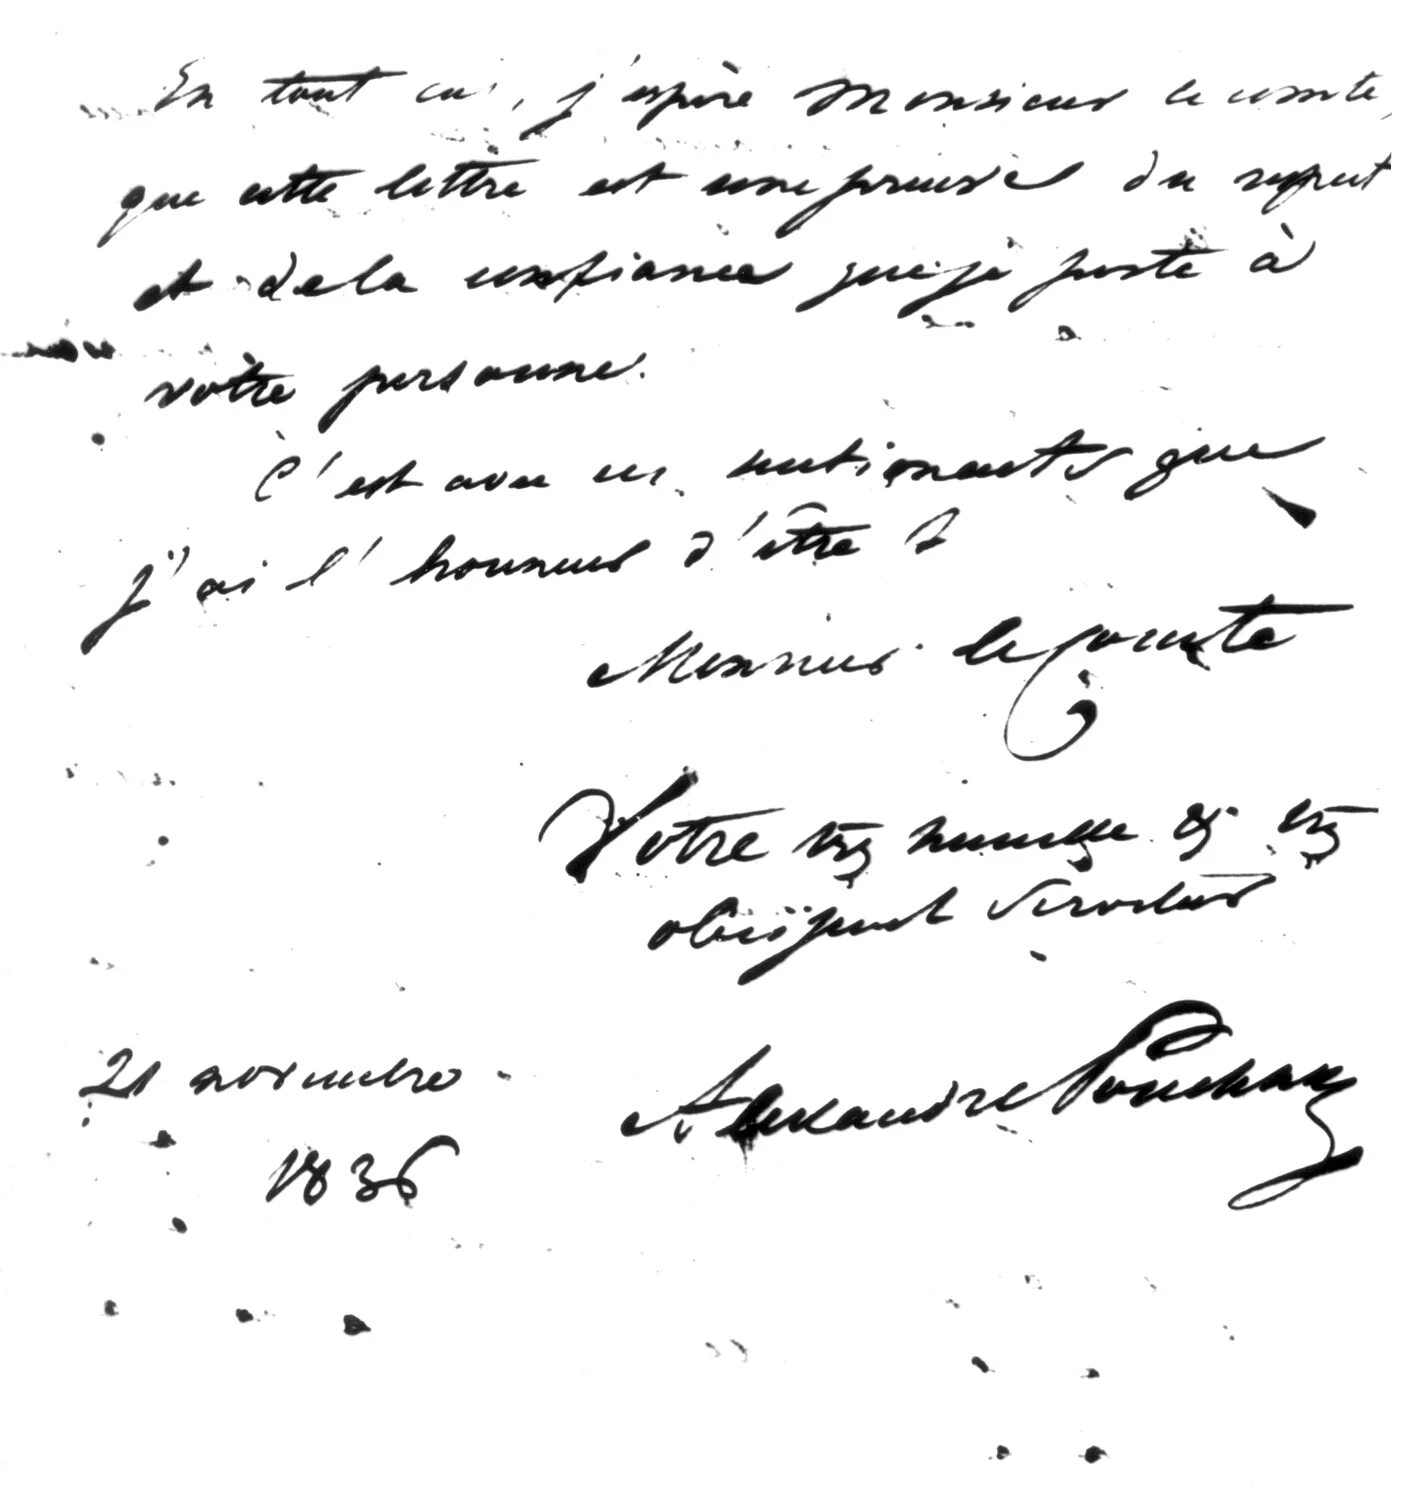 En tout cas, j'espère Monsieur le comte,
que cette lettre est une preuve du respect
et de la confiance que je porte à
votre personne.
C'est avec ces sentiments que
j'ai l'honneur d'être
Monsieur le Comte
Votre très humble & très
obéissant Serviteur
Alexandre Pouchkine
21 novembre
1836